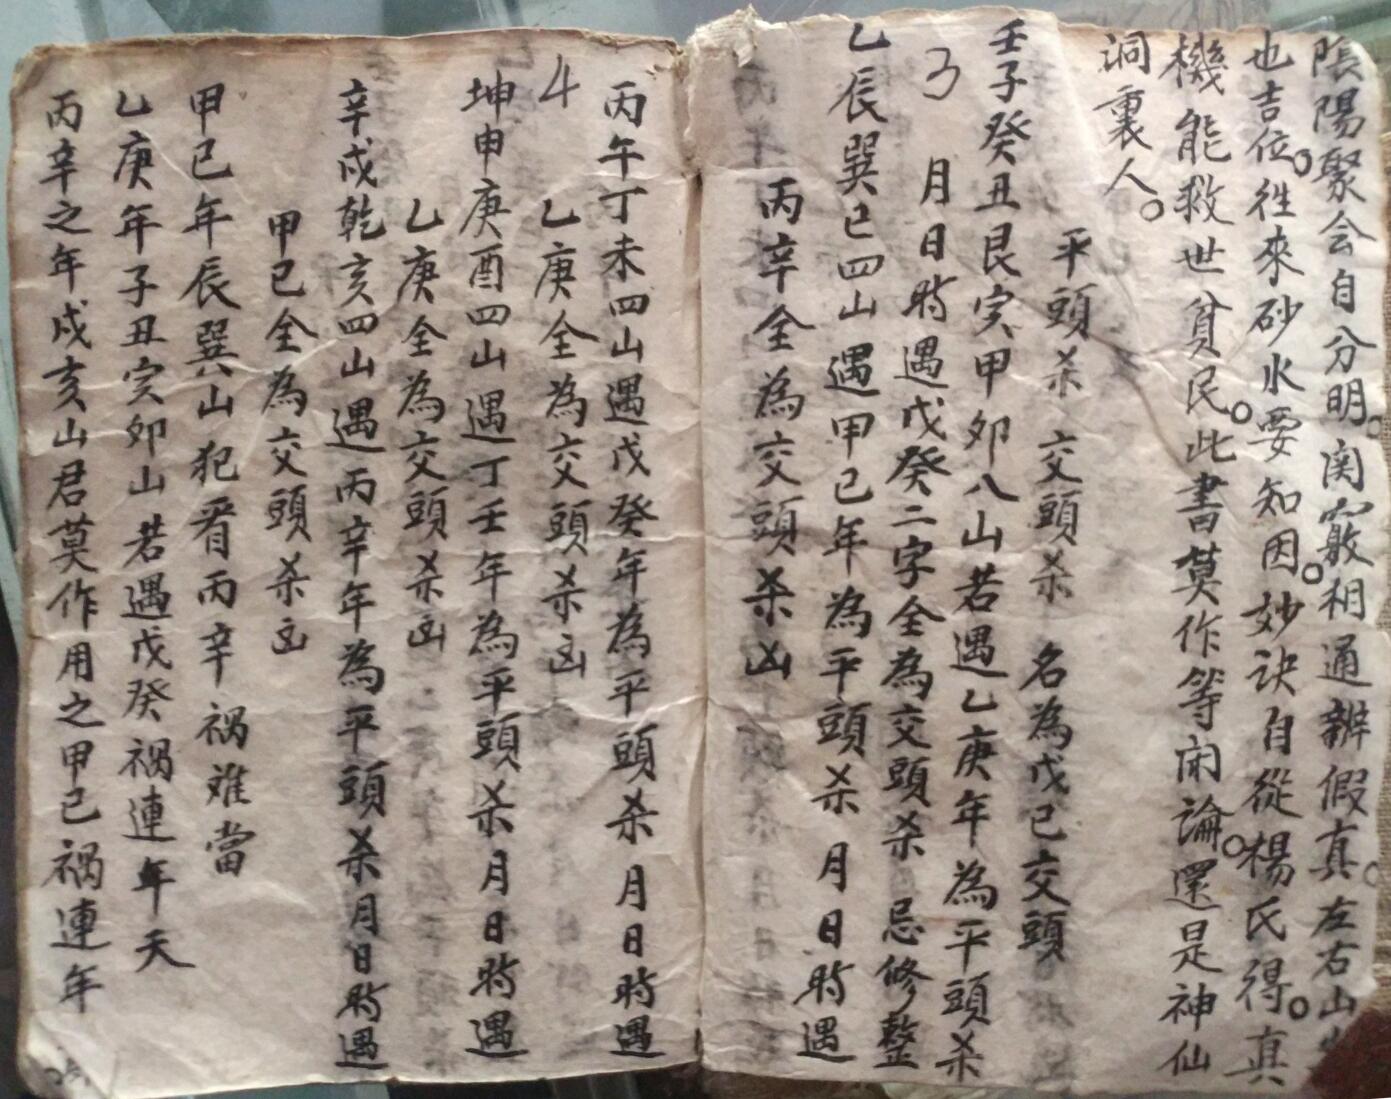 陰陽聚会自分明。関竅相通辨假真。左右山
也吉位。往來砂水要知因。妙訣自從楊氏得。真
機能救世貧民。此書莫作等闲論。還是神仙
洞裏人。
平頭杀 交頭杀 名為戊己交頭
壬子癸丑艮寅甲卯八山若遇乙庚年為平頭杀
3 月日時遇戊癸二字全為交頭杀忌修整
乙辰巽巳四山遇甲己年為平頭杀月日時遇
丙辛全為交頭杀凶
丙午丁未四山遇戊癸年為平頭杀月日時遇
4 乙庚全為交頭杀凶
坤申庚酉四山遇丁壬年為平頭杀月日時遇
乙庚全為交頭杀凶
辛戌乾亥四山遇丙辛年為平頭杀月日時遇
甲己全為交頭杀凶
甲己年辰巽山犯着丙辛祸难當
乙庚年子丑寅卯山若遇戊癸祸連年天
丙辛之年戌亥山君莫作用之甲己祸連年